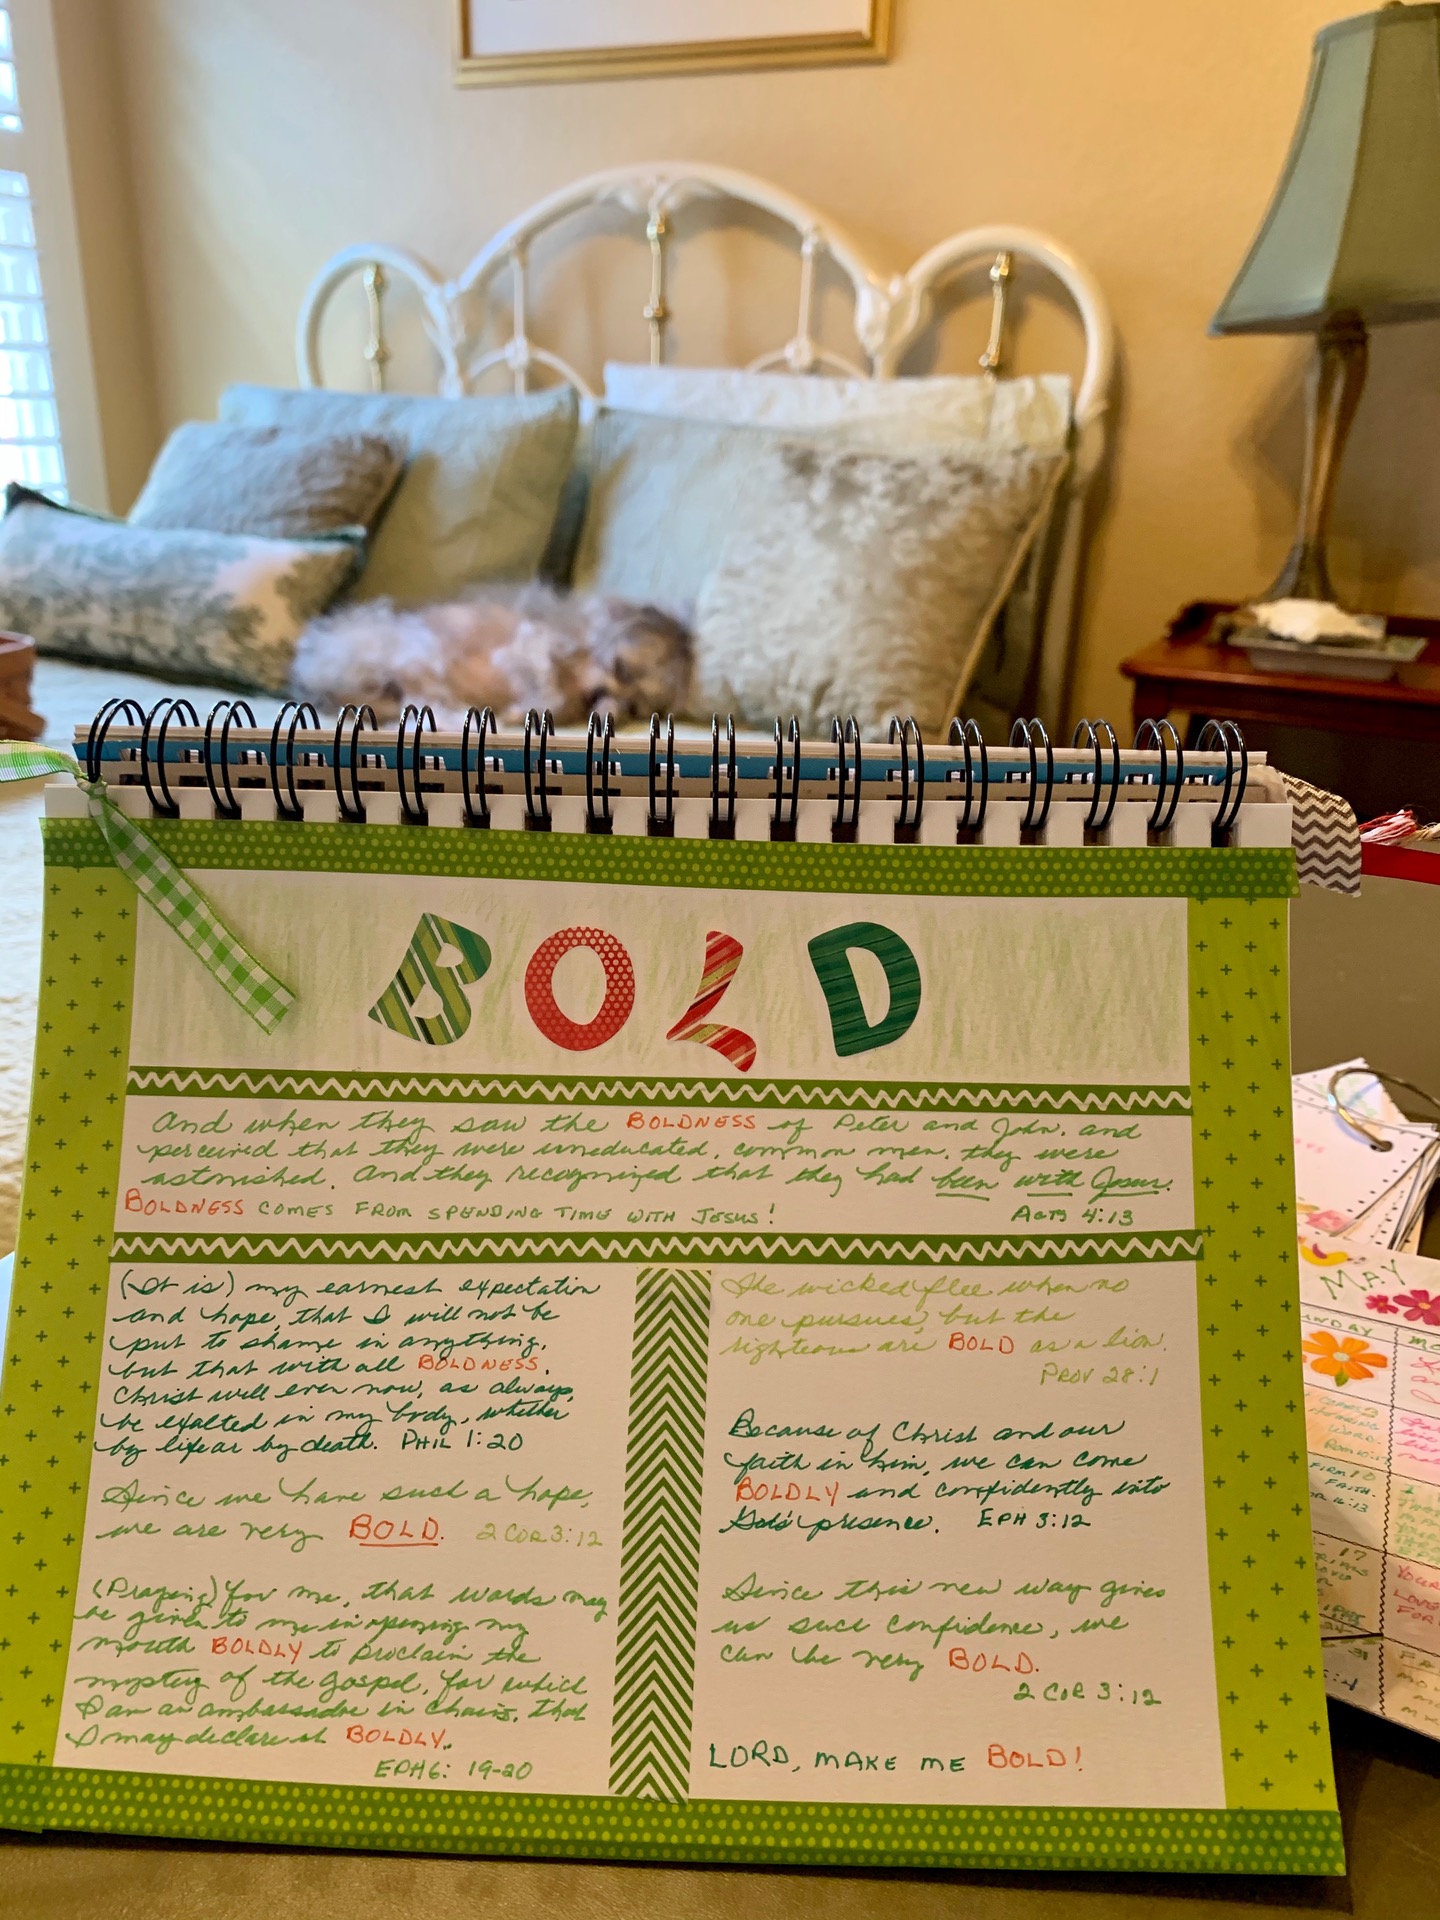 BOLD
And when they saw the BOLDNESS of Peter and John, and
perceived that they were uneducated, common men, they were
astonished. And they recognized that they had been with Jesus.
BOLDNESS COMES FROM SPENDING TIME WITH JESUS!
ACTS 4:13
(It is) my earnest expectation
and hope, that I will not be
put to shame in anything,
but that with all BOLDNESS,
Christ will even now, as always,
be exalted in my body, whether
by life or by death. PHIL 1:20
Since we have such a hope,
we are very BOLD. 2 COR 3:12
(Praying) for me, that words may
be given to me in opening my
mouth BOLDLY to proclaim the
mystery of the Gospel, for which
I am an ambassador in chains, that
I may declare it BOLDLY.
EPH 6: 19-20
The wicked flee when no
one pursues, but the
righteous are BOLD as a lion.
PROV 28:1
Because of Christ and our
faith in him, we can come
BOLDLY and confidently into
God's presence. EPH 3:12
Since this new way gives
us such confidence, we
can be very BOLD.
2 COR 3:12
LORD, MAKE ME BOLD!
MAY
NDAY
MO
WORD.
FIRM
FAITH.
17
YOUR
LOVE
FOR
31